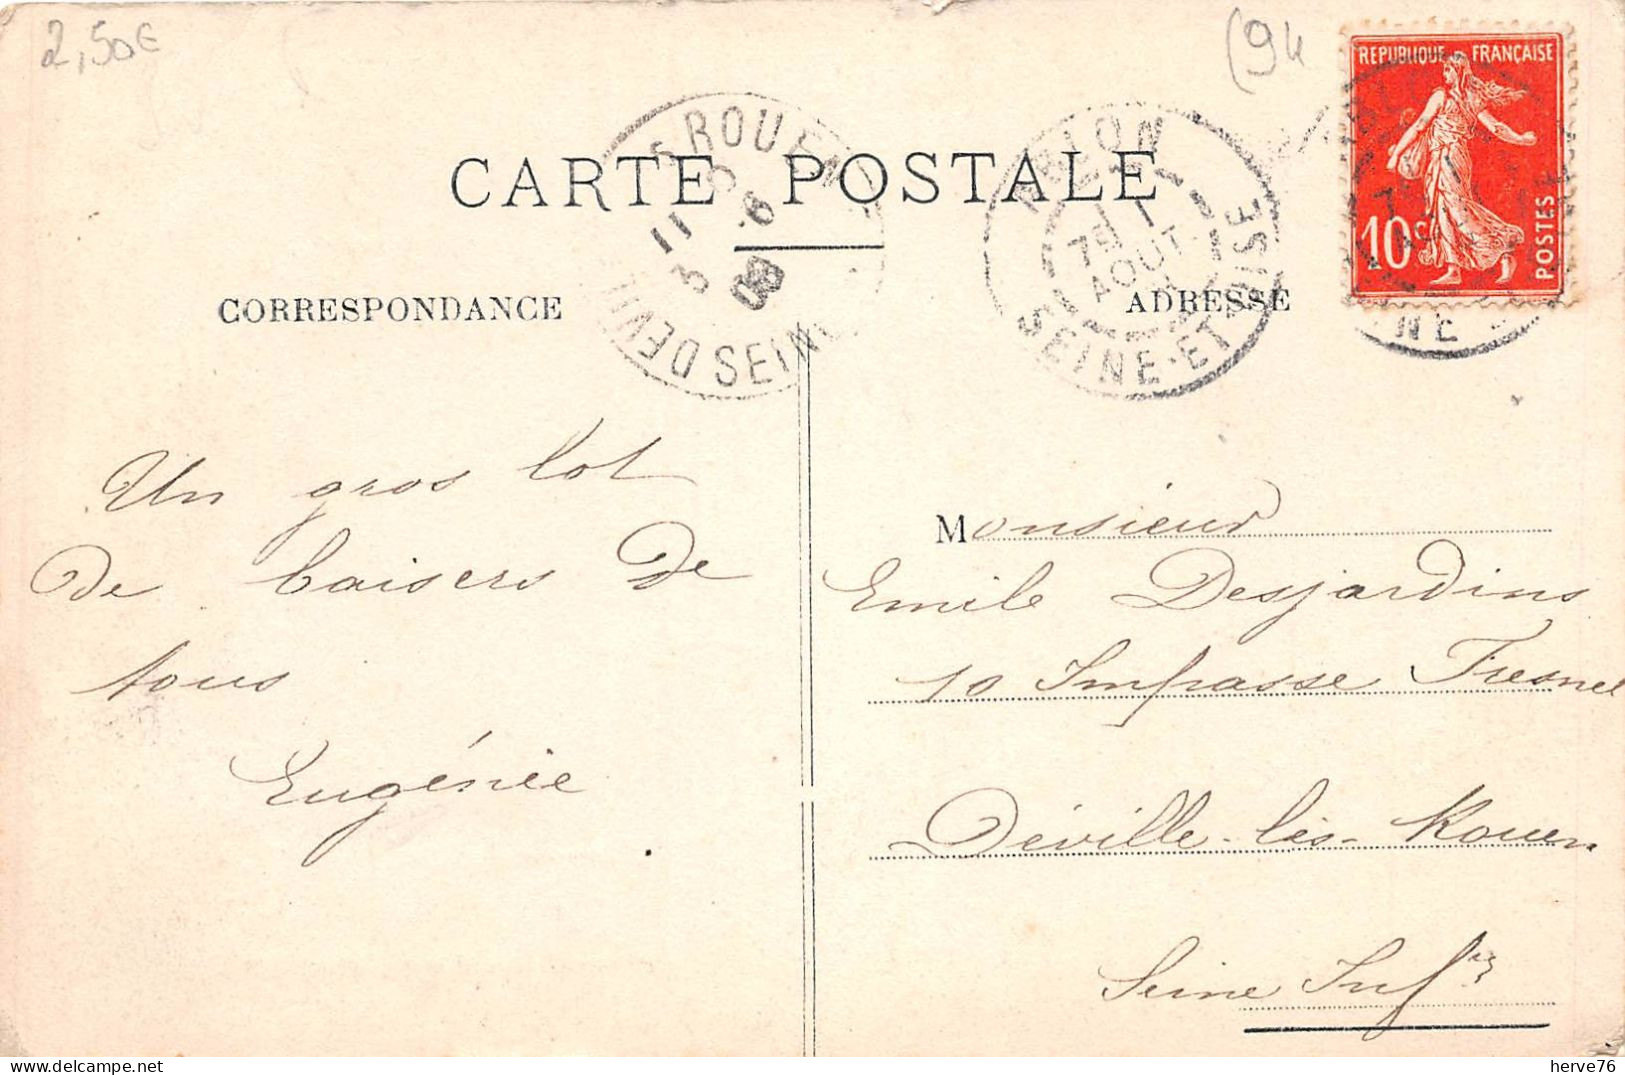 2,50€
(94
REPUBLIQUE FRANÇAISE
10c
POSTES
CARTE POSTALE
CORRESPONDANCE
ADRESSE
ABLON
7E 1
AOUT
SEINE-ET-OISE
DEVILLE LES ROUEN
SEINE
11
3 8
08
Un gros lot
de baisers de
tous
Eugénie
Monsieur
Emile Desjardins
10 Impasse Fresnel
Déville-lès-Rouen
Seine Infre
herve76